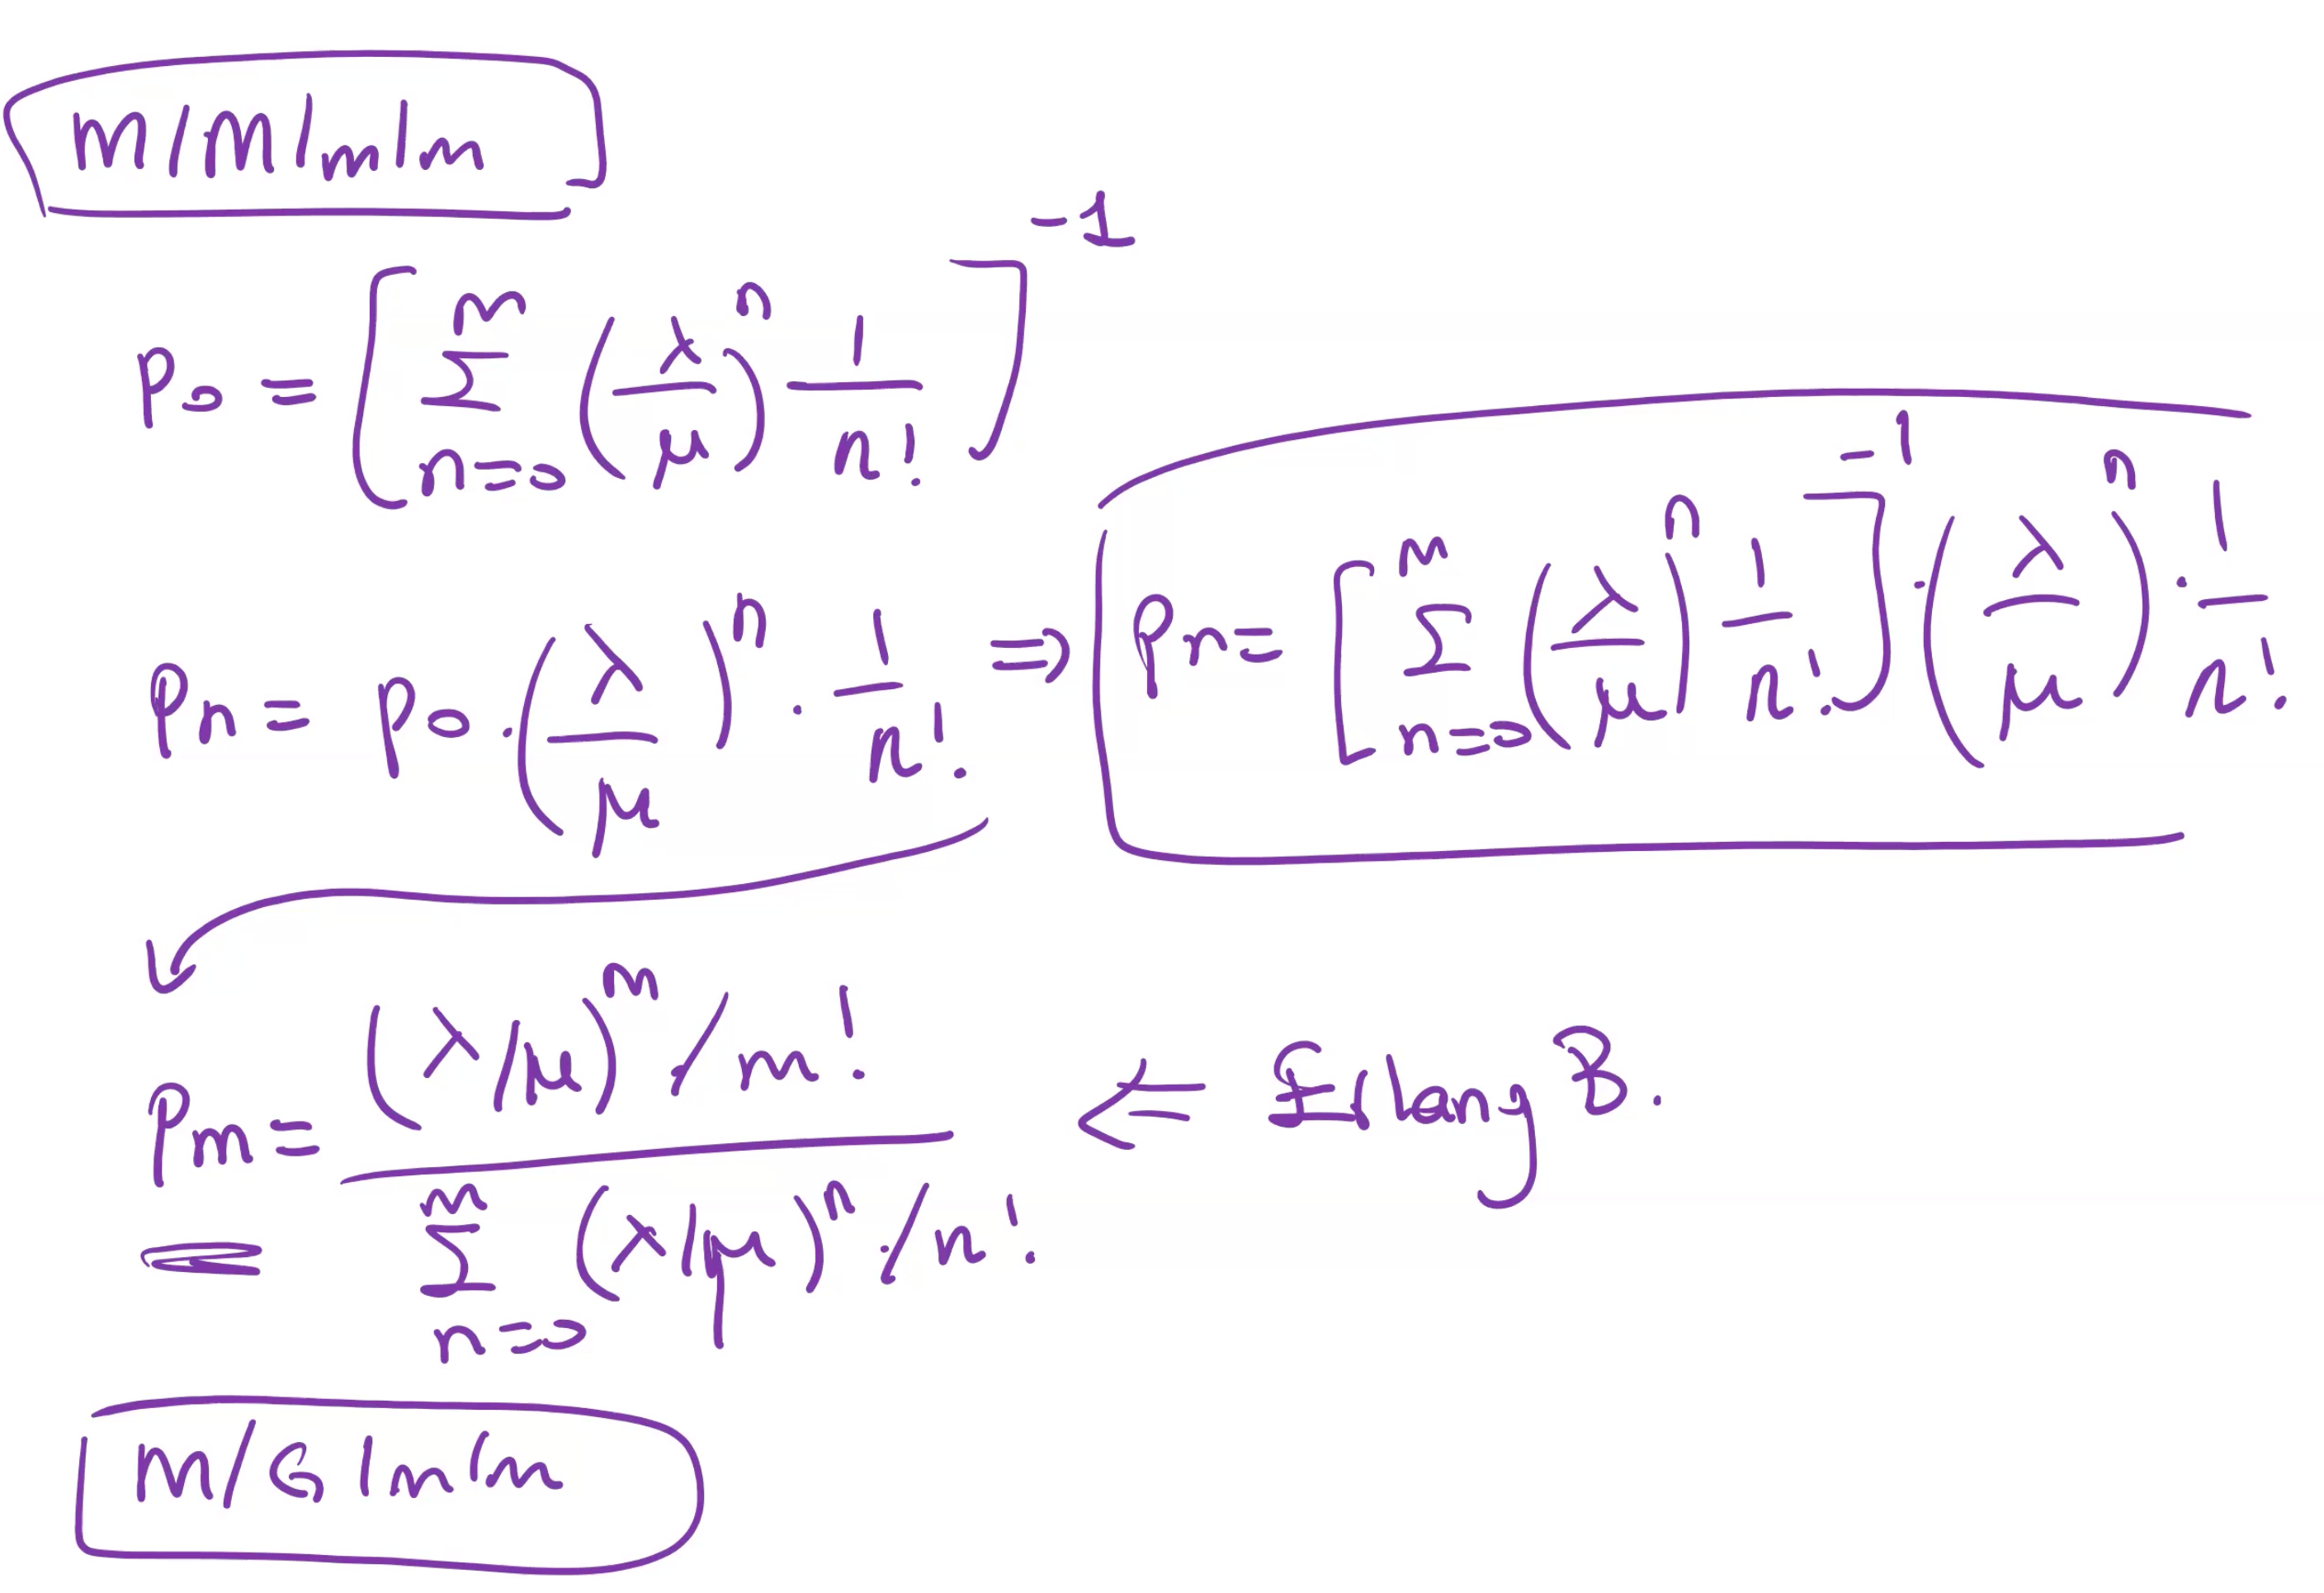 M/M/m/m
p₀ = [ Σ_{n=0}^{m} (λ/μ)^n 1/n! ]^{-1}
p_n = p₀ · (λ/μ)^n · 1/n! ⇒ p_n = [ Σ_{n=0}^{m} (λ/μ)^n 1/n! ]^{-1} · (λ/μ)^n · 1/n!
p_m = (λ/μ)^m / m! / Σ_{n=0}^{m} (λ/μ)^n / n! ⇐ Erlang B.
M/G/m/m